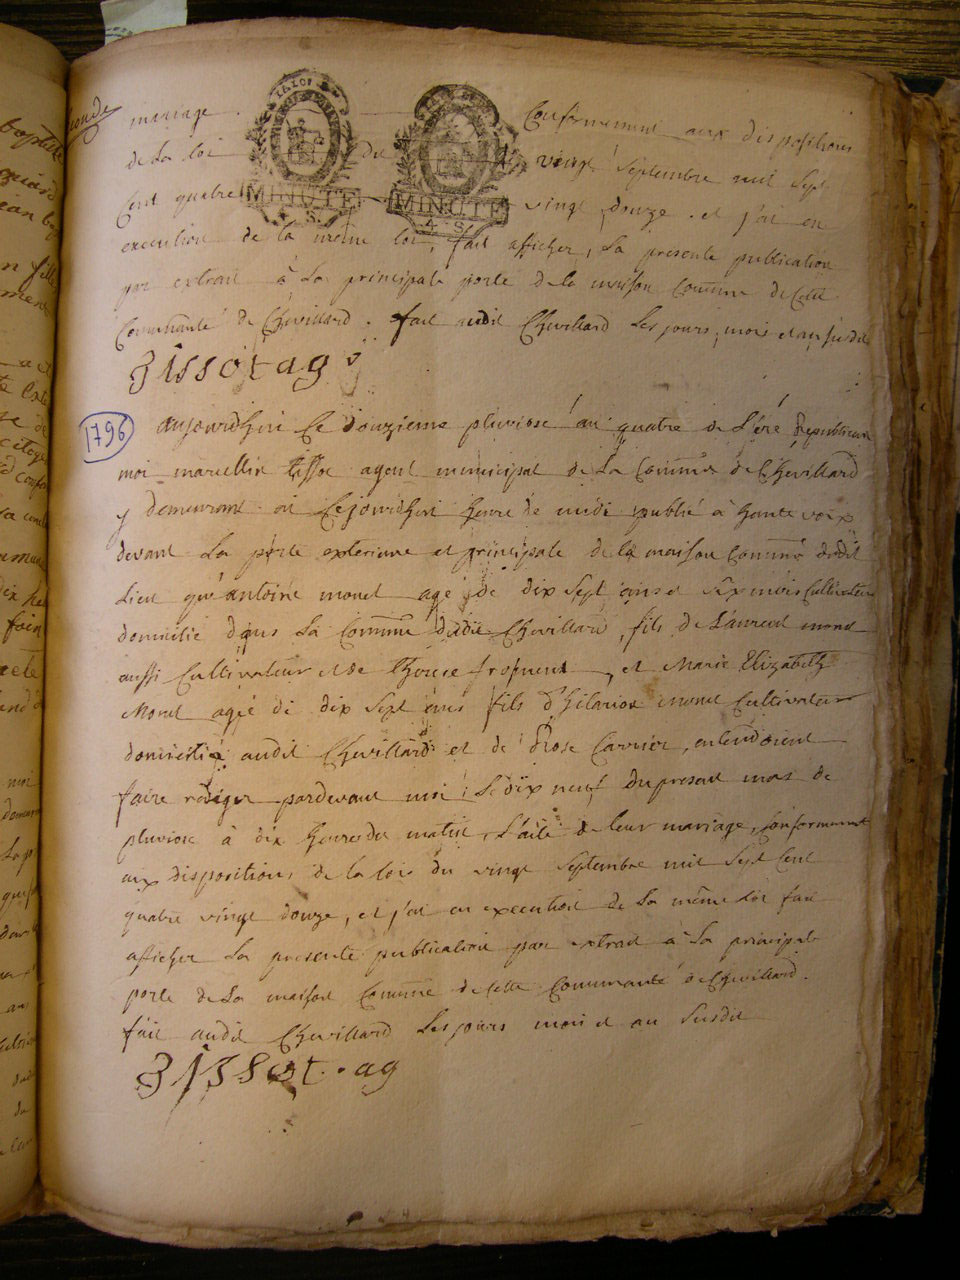 mariage Conformement aux dispositions
de La loi du vingt Septembre mil Sept
Cent quatre vingt douze . et j'ai en
LA LOI
MINUTE
4 S.
MINUTE
4 S.
execution de la meme loi, fait afficher, La presente publication
par extrait à La principale porte de la maison Comune de Cette
Communauté de Chevillard . fait audit Chevillard Les jours, mois et an susdit
Tissot ag
1796
aujourdhui Le douzieme pluviose an quatre de L'ére Republicaine
moi marcellin tissot agent municipal de La Commune de Chevillard
y demeurant ai Cejourdhui heure de midi publié à haute voix
devant La porte exterieure et principale de la maison Commune dudit
Lieu qu'antoine monet agé de dix Sept ans et six mois Cultivateur
domicilié dans La Commune dudit Chevillard, fils de Laurent monet
aussi Cultivateur et de froment, et Marie Elizabeth
Monet agée de dix Sept ans fils d'hilarion monet Cultivateur
domicilié audit Chevillard et de Rose Carrier, entendoient
faire rediger pardevant moi Le dix neuf du present mois de
pluviose à dix heures du matin, L'acte de leur mariage, Conformement
aux dispositions de la loi du vingt Septembre mil Sept Cent
quatre vingt douze, et j'ai en execution de La même Loi fait
afficher La presente publication par extrait à La principale
porte de La maison Commune de Cette Communauté de Chevillard.
fait audit Chevillard Les jours mois et an Susdit
Tissot . ag